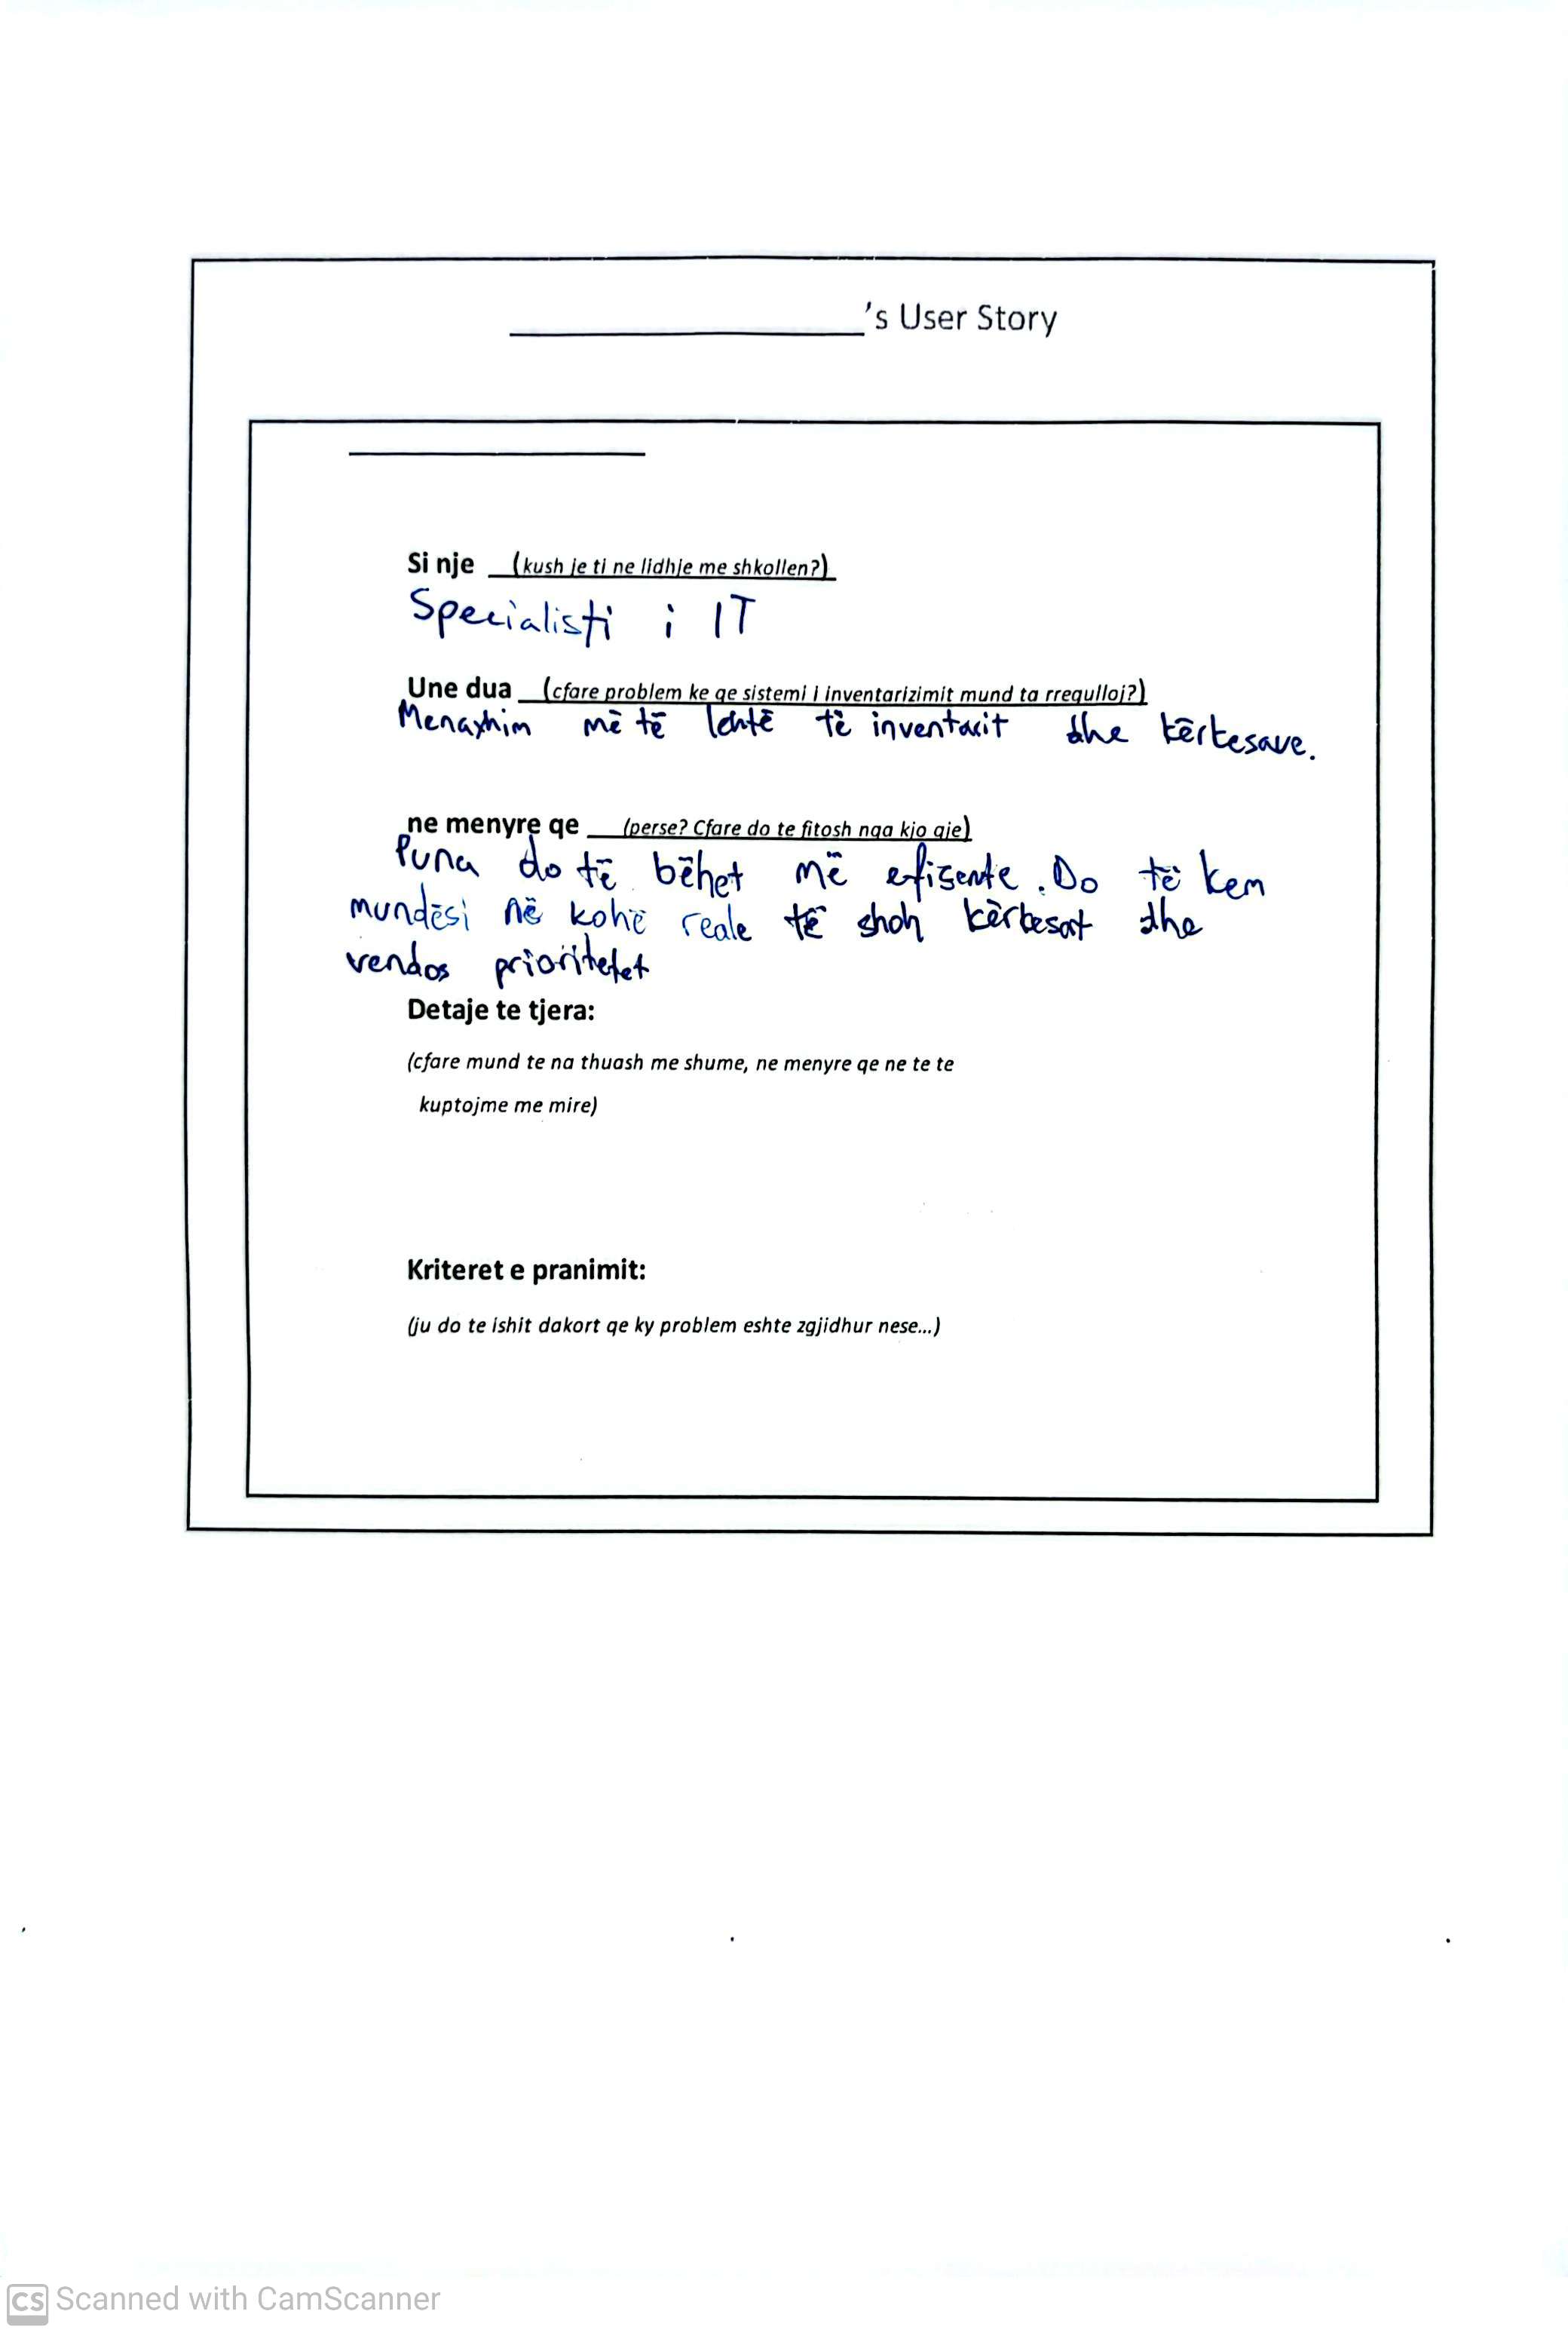 ______________'s User Story
Si nje __(kush je ti ne lidhje me shkollen?)
Specialisti i IT
Une dua __(cfare problem ke qe sistemi i inventarizimit mund ta rregulloj?)
Menaxhim më të lehtë të inventarit dhe kërkesave.
ne menyre qe __(perse? Cfare do te fitosh nga kjo gje)
Puna do të bëhet më efiçente. Do të kem
mundësi në kohë reale të shoh kërkesat dhe
vendos prioritetet
Detaje te tjera:
(cfare mund te na thuash me shume, ne menyre qe ne te te
kuptojme me mire)
Kriteret e pranimit:
(ju do te ishit dakort qe ky problem eshte zgjidhur nese...)
CS Scanned with CamScanner